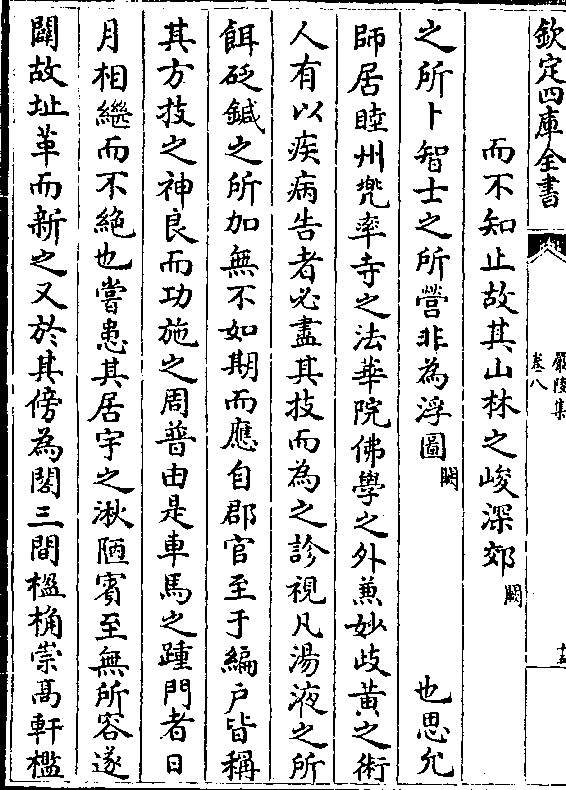 欽定四庫全書
嚴陵集
卷八
而不知止故其山林之峻深郊闕
之所卜智士之所營非為浮圖闕也思允
師居睦州兠率寺之法華院佛學之外兼妙歧黃之術
人有以疾病告者必盡其技而為之診視凡湯液之所
餌砭鍼之所加無不如期而應自郡官至于編戶皆稱
其方技之神良而功施之周普由是車馬之踵門者日
月相繼而不絶也嘗患其居宇之湫陋賔至無所容遂
闢故址革而新之又於其傍為閣三間楹桷崇髙軒檻